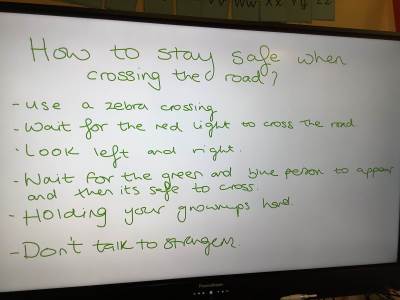 How to stay safe when
crossing the road?
- use a zebra crossing
- Wait for the red light to cross the road
· Look left and right.
- Wait for the green and blue person to appear
and then its safe to cross.
- Holding your grownups hand.
- Don't talk to strangers.
Ww Xx Yy Zz